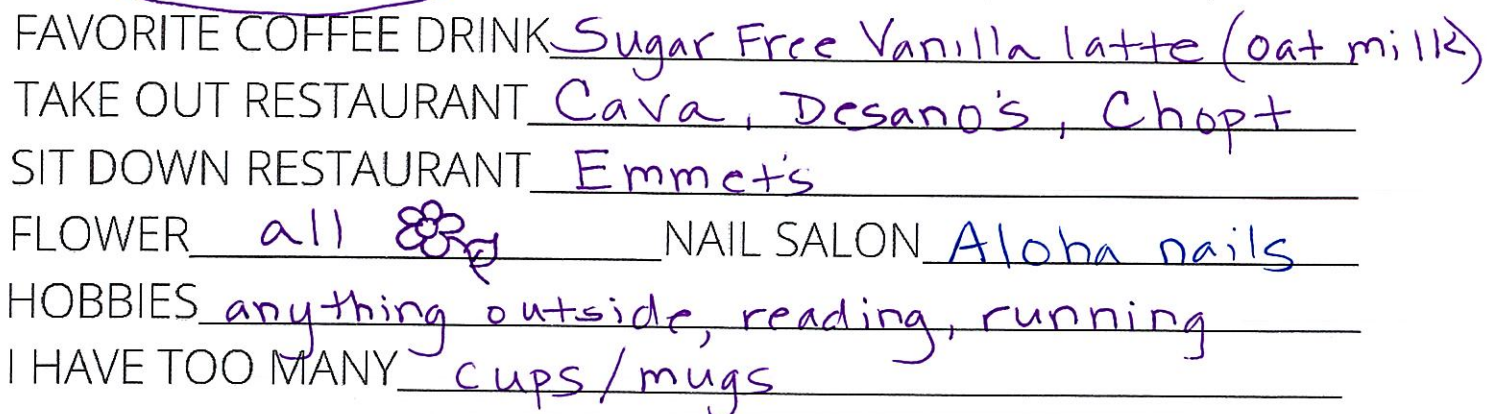 FAVORITE COFFEE DRINK Sugar Free Vanilla latte (oat milk)
TAKE OUT RESTAURANT Cava, Desano's, Chopt
SIT DOWN RESTAURANT Emmet's
FLOWER all NAIL SALON Aloha nails
HOBBIES anything outside, reading, running
I HAVE TOO MANY cups/mugs